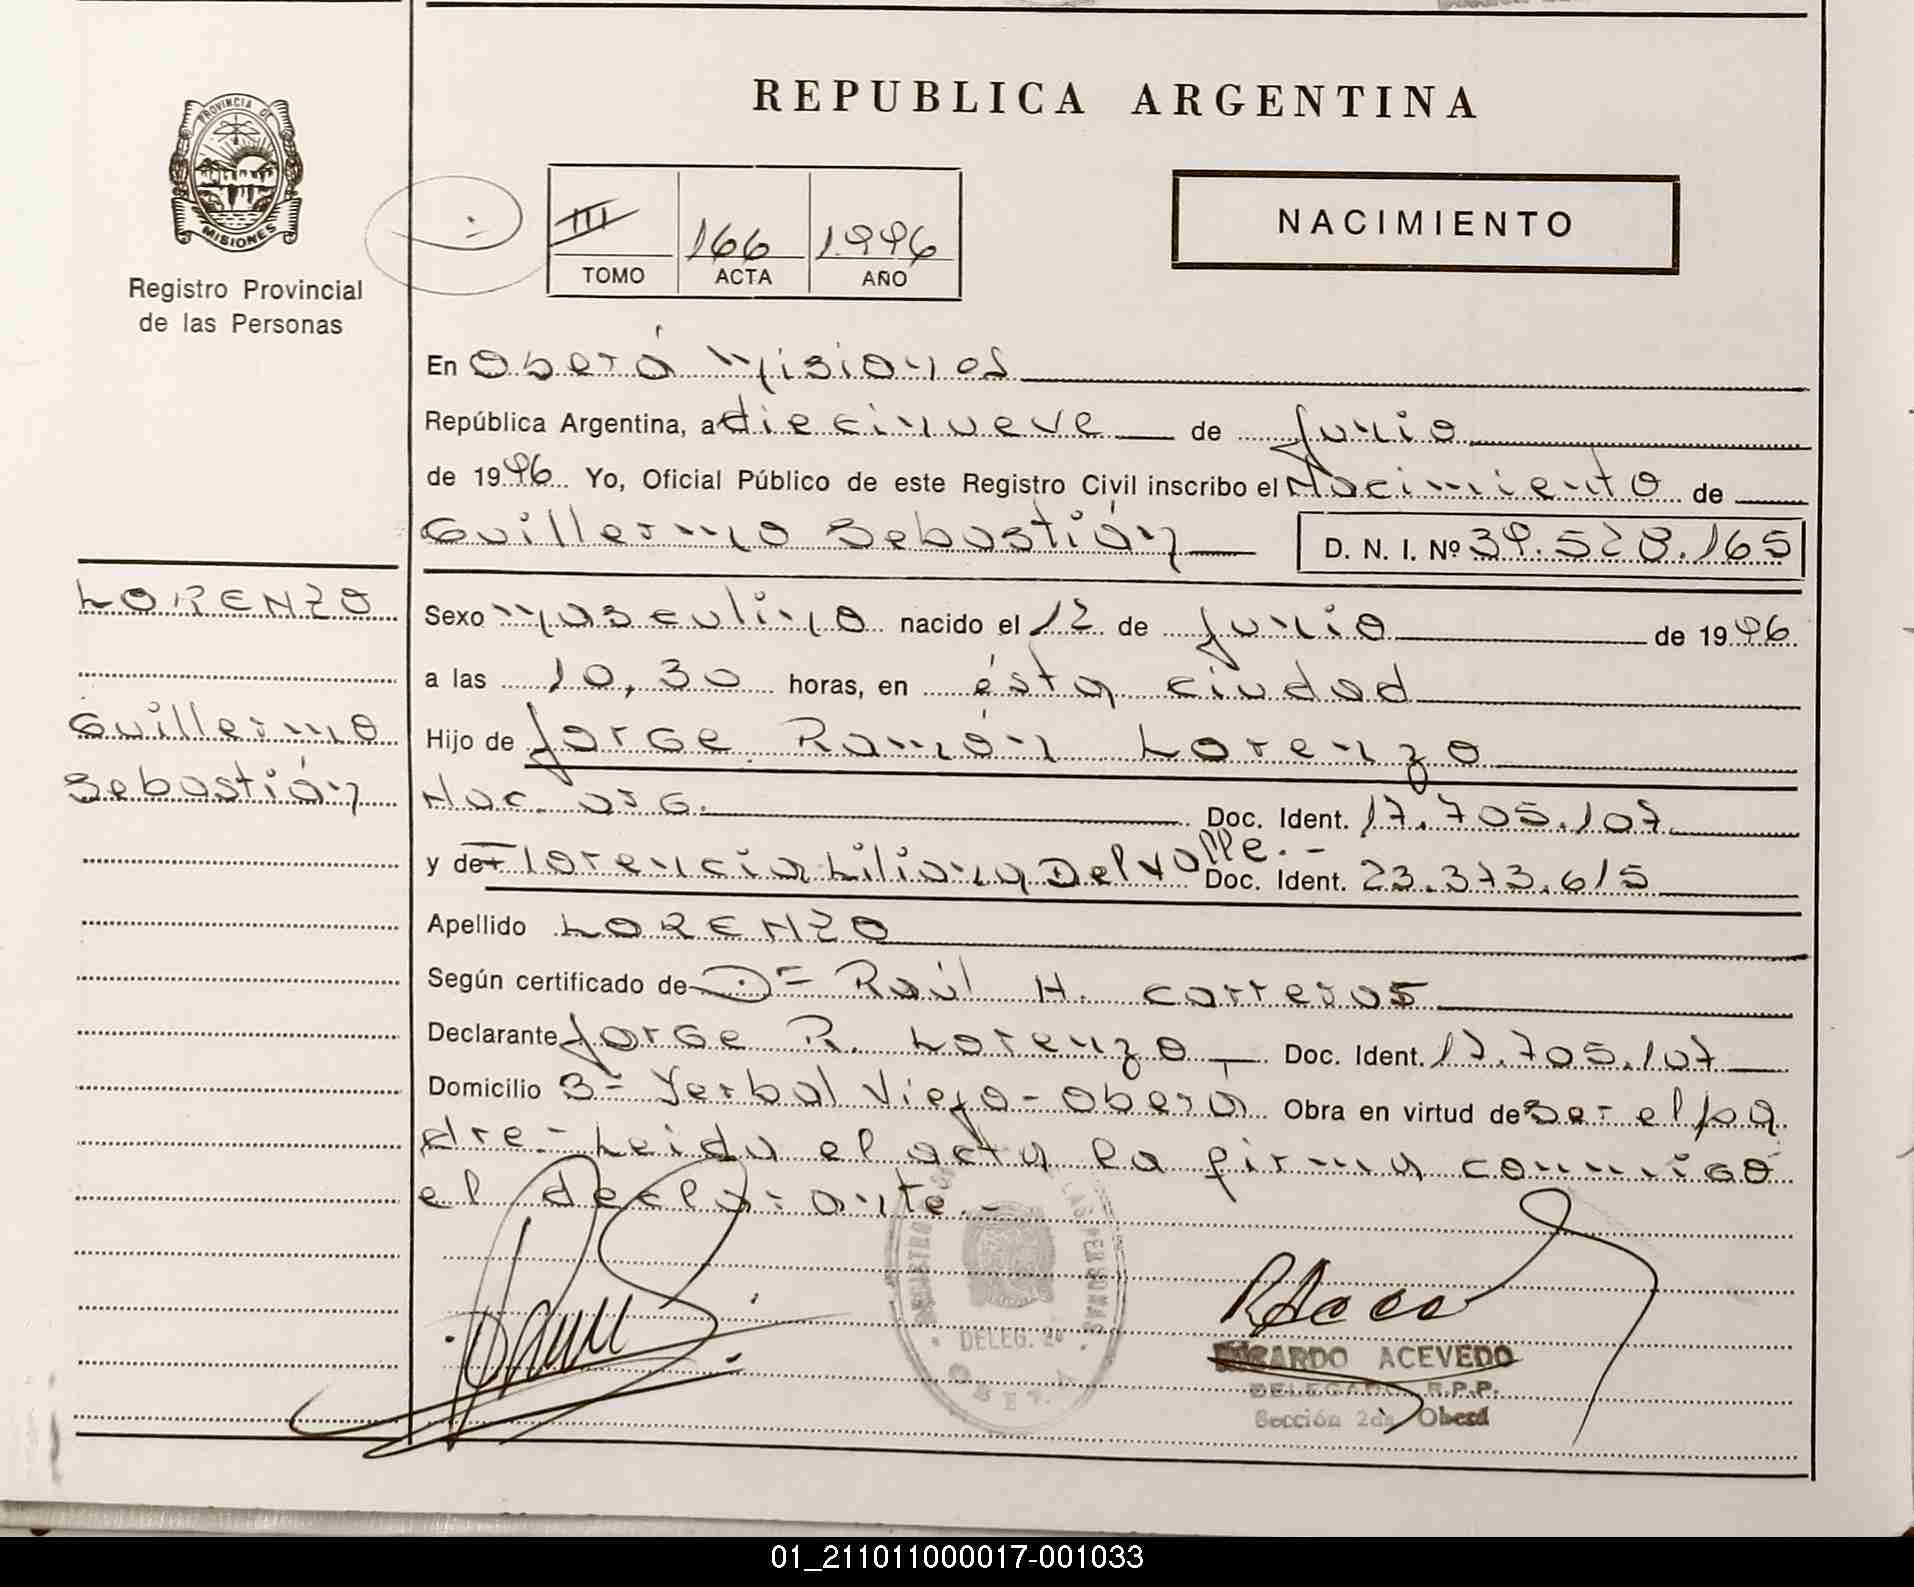 REPUBLICA ARGENTINA
PROVINCIA DE
MISIONES
Registro Provincial
de las Personas
III
TOMO
166
ACTA
1996
AÑO
NACIMIENTO
En Oberá Misiones
República Argentina, a diecinueve de Junio
de 1996 Yo, Oficial Público de este Registro Civil inscribo el Nacimiento de
Guillermo Sebastián D. N. I. Nº 39.528.165
LORENZO
Guillermo
Sebastián
Sexo Masculino nacido el 12 de Junio de 1996
a las 10,30 horas, en ésta ciudad
Hijo de Jorge Ramón Lorenzo
Nac. arg. Doc. Ident. 17.705.107
y de Florencia Liliana Del Valle.- Doc. Ident. 23.373.615
Apellido LORENZO
Según certificado de Dr Raúl H. Carreras
Declarante Jorge R. Lorenzo Doc. Ident. 17.705.107
Domicilio 3= Yerbal Viejo - Oberá Obra en virtud de ser el pa
dre - Leida el acta la firma conmigo
el declarante.-
REGISTRO LAS PERSONAS
DELEG. 2a
OBERA
RICARDO ACEVEDO
DELEGADO R.P.P.
Sección 2da Oberá
01_211011000017-001033